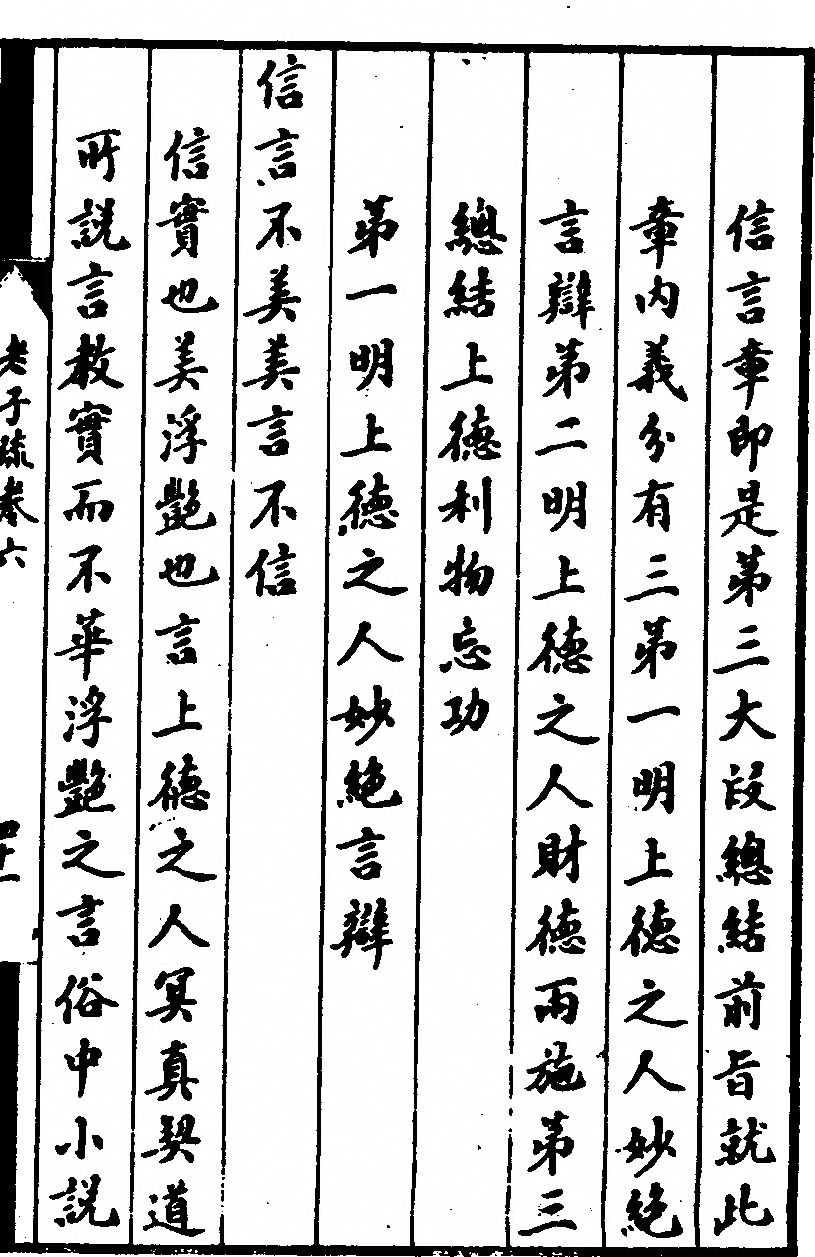 信言章即是第三大段總結前旨就此
章內義分有三第一明上德之人妙絕
言辯第二明上德之人財德兩施第三
總結上德利物忘功
第一明上德之人妙絕言辯
信言不美美言不信
信實也美浮艷也言上德之人冥真契道
所說言教實而不華浮艷之言俗中小說
老子疏卷六
四十一